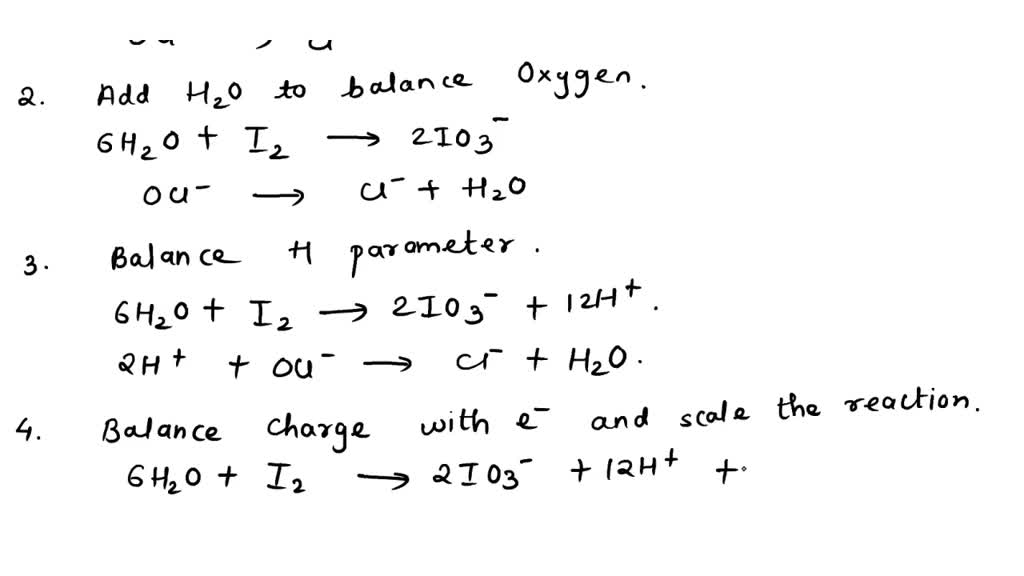 2. Add H₂O to balance Oxygen.
6H₂O + I₂ → 2IO₃⁻
OCl⁻ → Cl⁻ + H₂O
3. Balance H parameter.
6H₂O + I₂ → 2IO₃⁻ + 12H⁺.
2H⁺ + OCl⁻ → Cl⁻ + H₂O.
4. Balance charge with e⁻ and scale the reaction.
6H₂O + I₂ → 2IO₃⁻ + 12H⁺ +